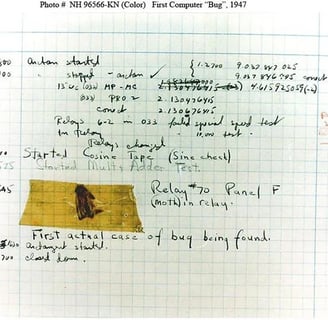 Photo # NH 96566-KN (Color) First Computer "Bug", 1947
800 Antan started { 1.2700 9.037 847 025
" stopped - antan ✓ 9.037 846 795 correct
13" UC (032) MP-MC 2.130476415 4.615925059(-2)
(033) PRO 2 2.130476415
correct 2.130676415
Relays 6-2 in 033 failed special speed test
in relay " 10,000 test.
Relays changed
Started Cosine Tape (Sine check)
525 Started Mult + Adder Test.
545 Relay #70 Panel F
(Moth) in relay.
First actual case of bug being found.
antangent started.
700 closed down.